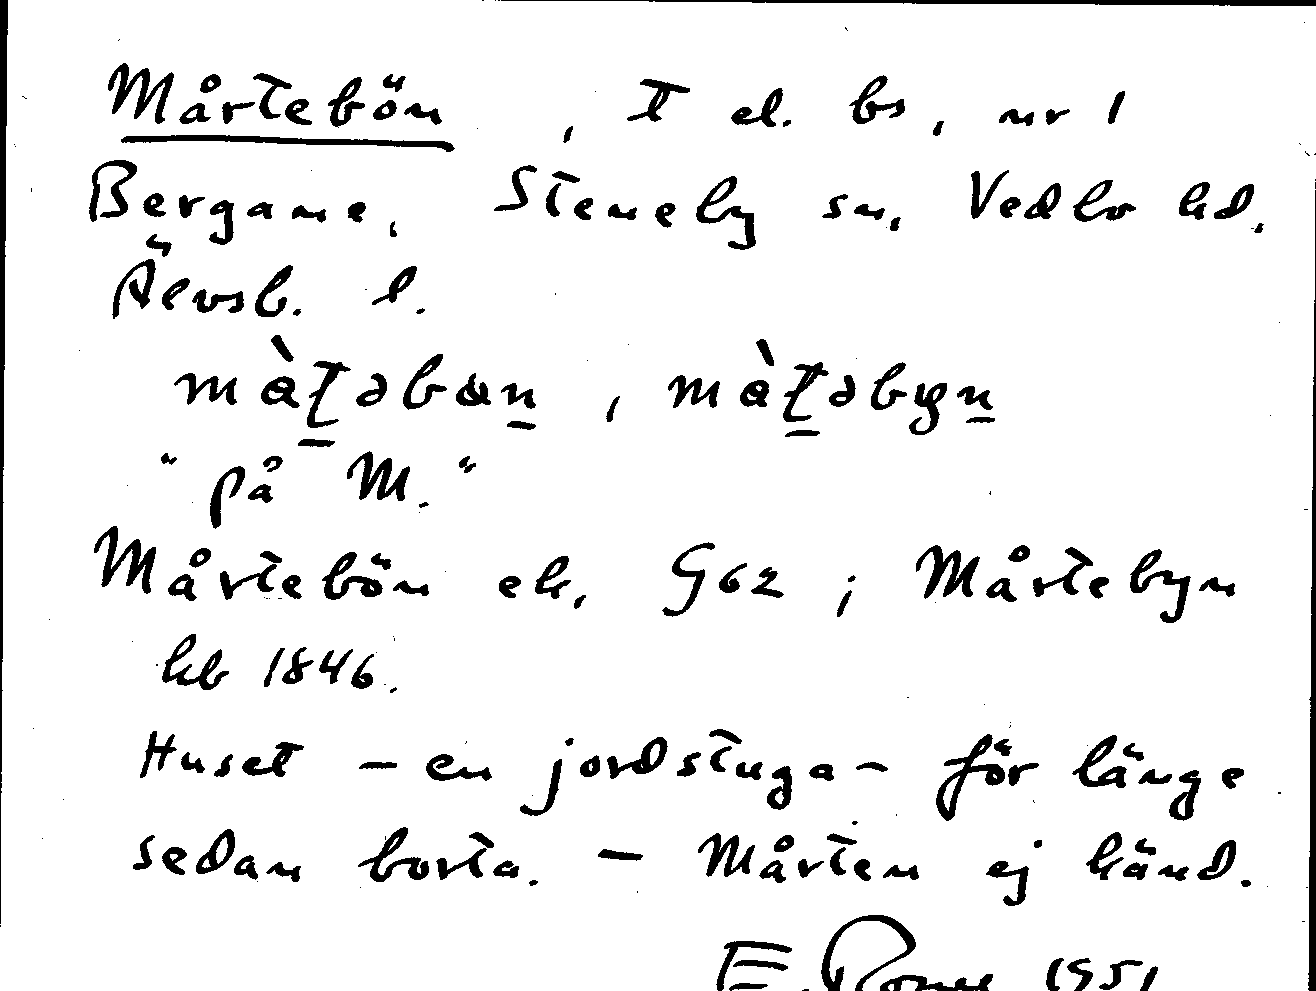 Mårtebön, T el. bs, nr 1
Bergane, Steneby sn, Vedbo hd.
Älvsb. l.
màt̲əbɵn̲, màt̲əbyn̲
"på M."
Mårtebön ek. G62; Mårtebyn
hb 1846.
Huset - en jordstuga - för länge
sedan borta. - Mårten ej känd.
E. 1951